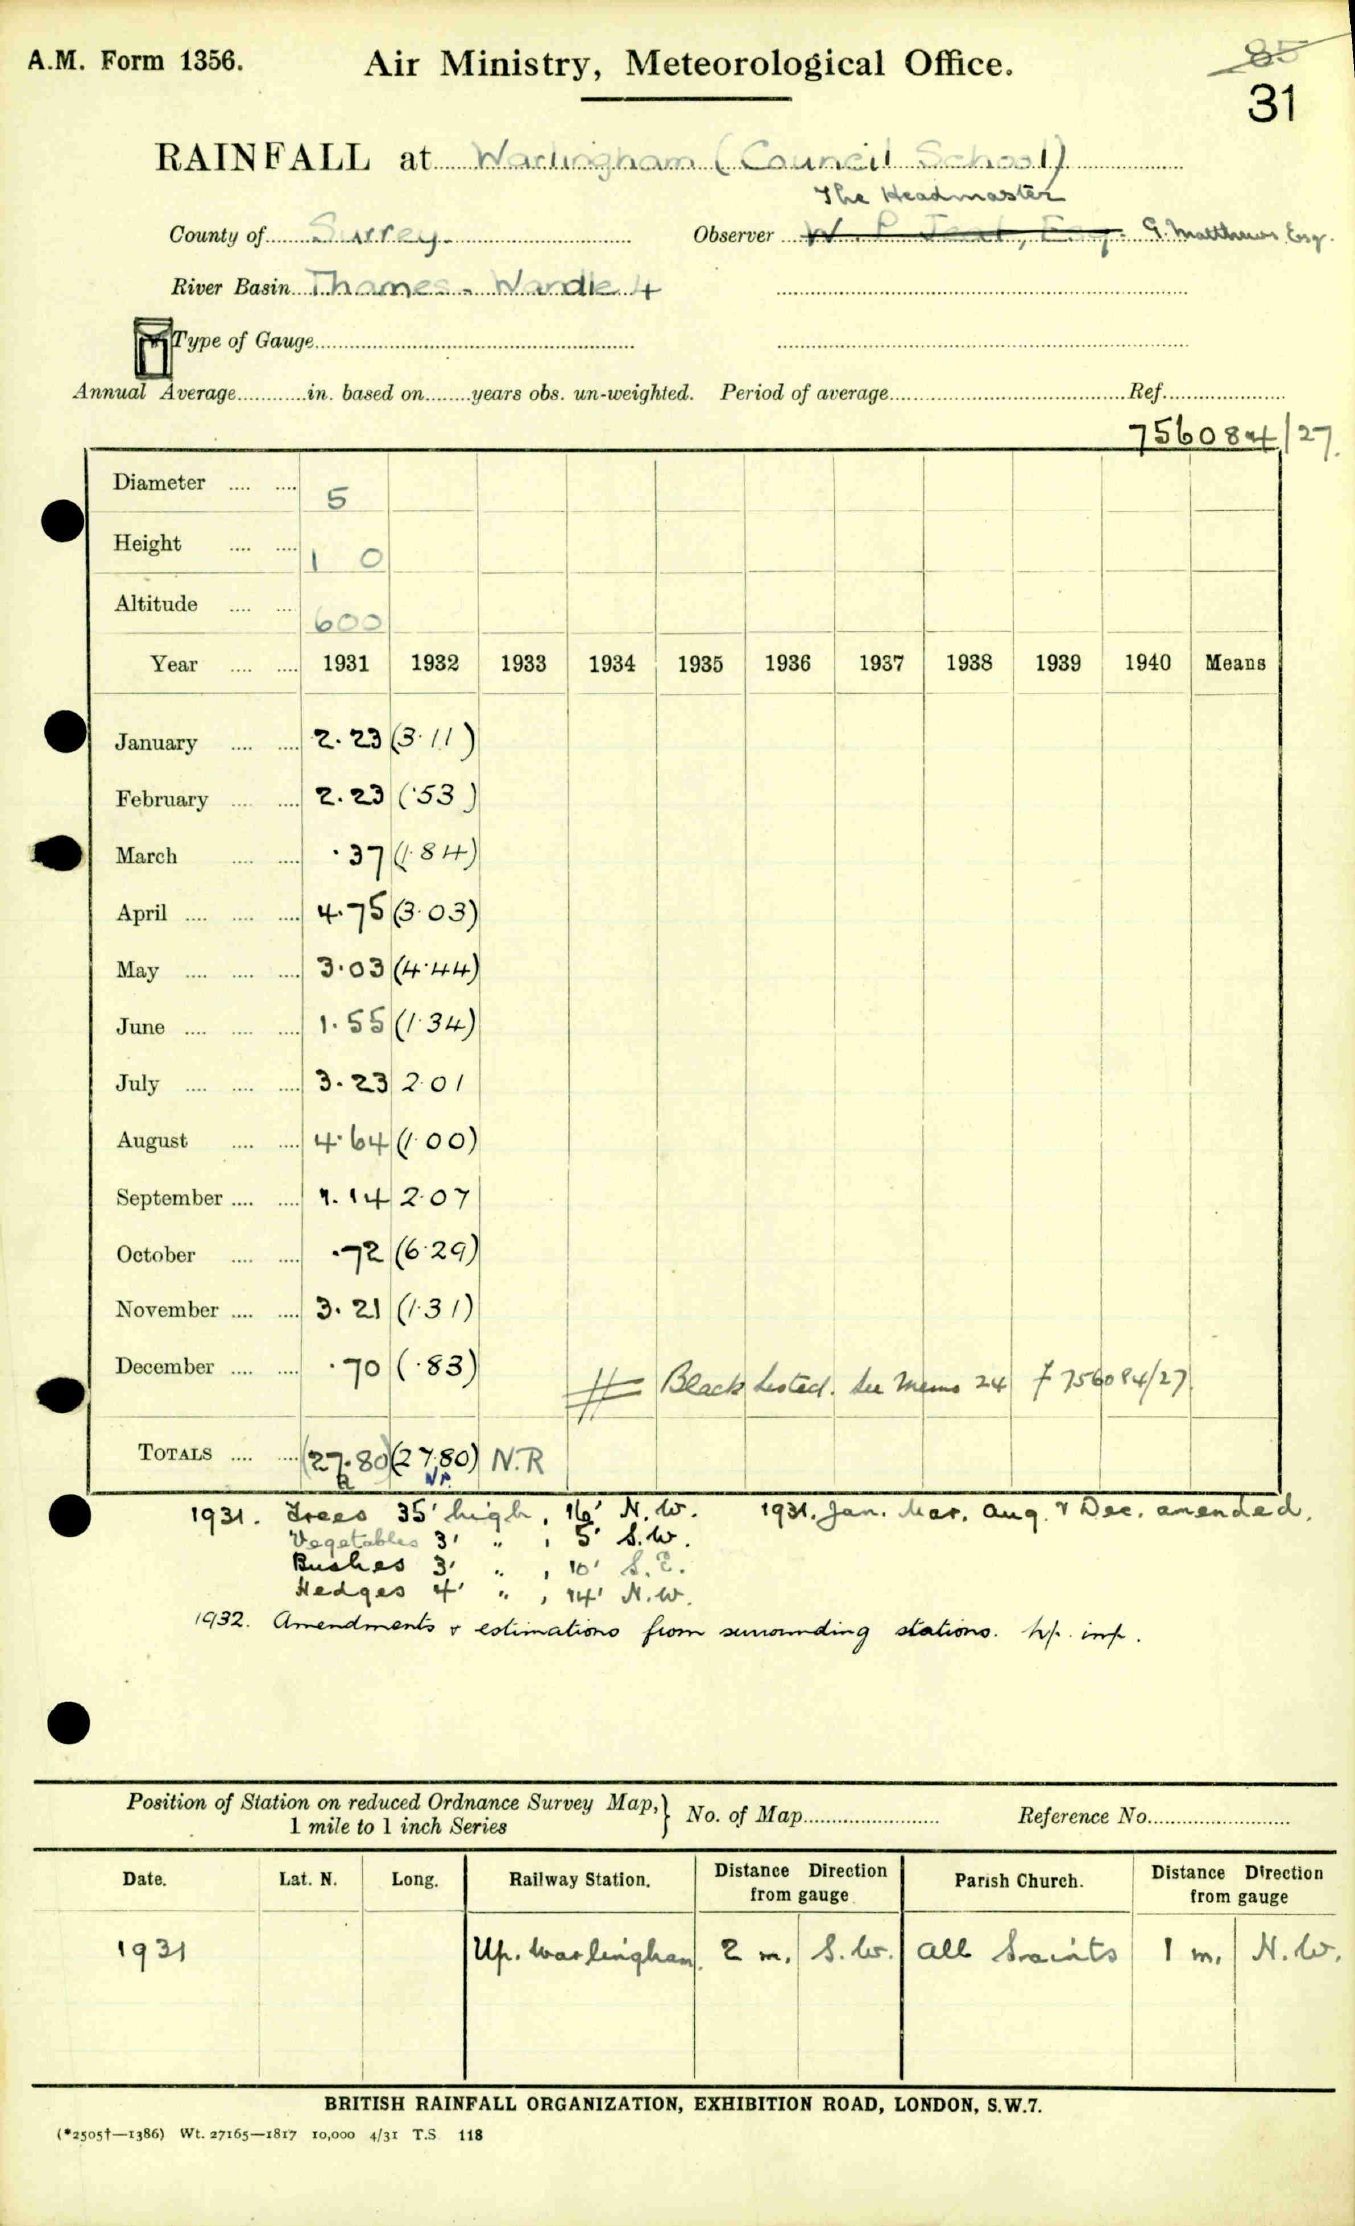 A.M. Form 1356.
Air Ministry, Meteorological Office.
85
31
RAINFALL at Warlingham (Council School)
The Headmaster
County of Surrey. Observer G. Matthews Esq.
River Basin Thames - Wandle 4
Type of Gauge
Annual Average in. based on years obs. un-weighted. Period of average Ref.
756084/27.
Diameter 5
Height 1 0
Altitude 600
Year 1931 1932 1933 1934 1935 1936 1937 1938 1939 1940 Means
January 2.23 (3.11)
February 2.23 (.53)
March .37 (1.84)
April 4.75 (3.03)
May 3.03 (4.44)
June 1.55 (1.34)
July 3.23 2.01
August 4.64 (1.00)
September 1.14 2.07
October .72 (6.29)
November 3.21 (1.31)
December .70 (.83)
Black Listed. See Memo 24 f 756084/27
TOTALS (27.80) (27.80) N.R
1931. Trees 35' high, 16' N.W. 1931. Jan. Mar. Aug. & Dec. amended.
Vegetables 3' " , 5' S.W.
Bushes 3' " , 10' S.E.
Hedges 4' " , 14' N.W.
1932. Amendments & estimations from surrounding stations.
Position of Station on reduced Ordnance Survey Map, } No. of Map Reference No.
1 mile to 1 inch Series
Date. Lat. N. Long. Railway Station. Distance Direction from gauge Parish Church. Distance Direction from gauge
1931 Up. Warlingham. 2 m. S.W. All Saints 1 m. N.W.
BRITISH RAINFALL ORGANIZATION, EXHIBITION ROAD, LONDON, S.W.7.
(*2505†—1386) Wt. 27165—1817 10,000 4/31 T.S. 118